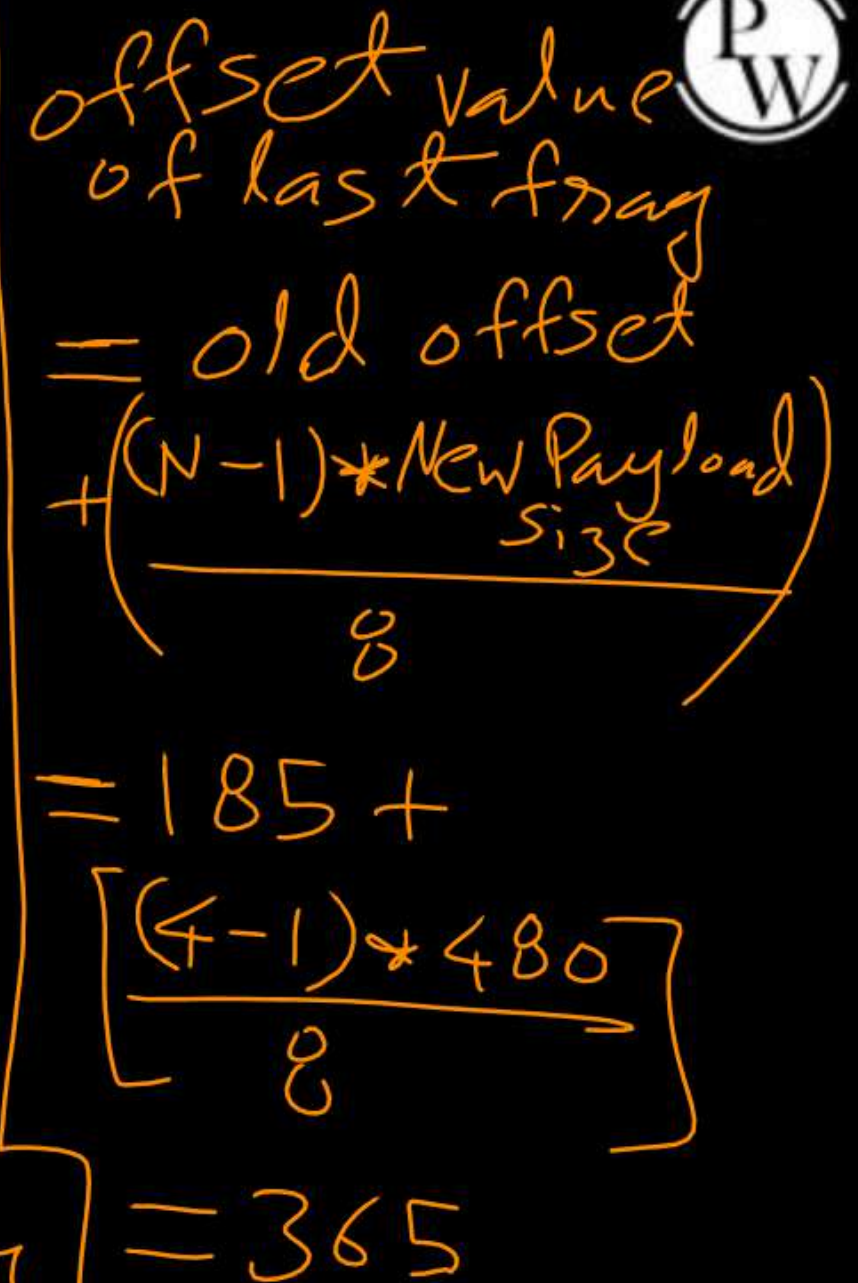 PW
offset value
of last frag
= old offset
+((N-1)*New Payload
size
8
)
= 185 +
[(4-1)*480
8
]
= 365